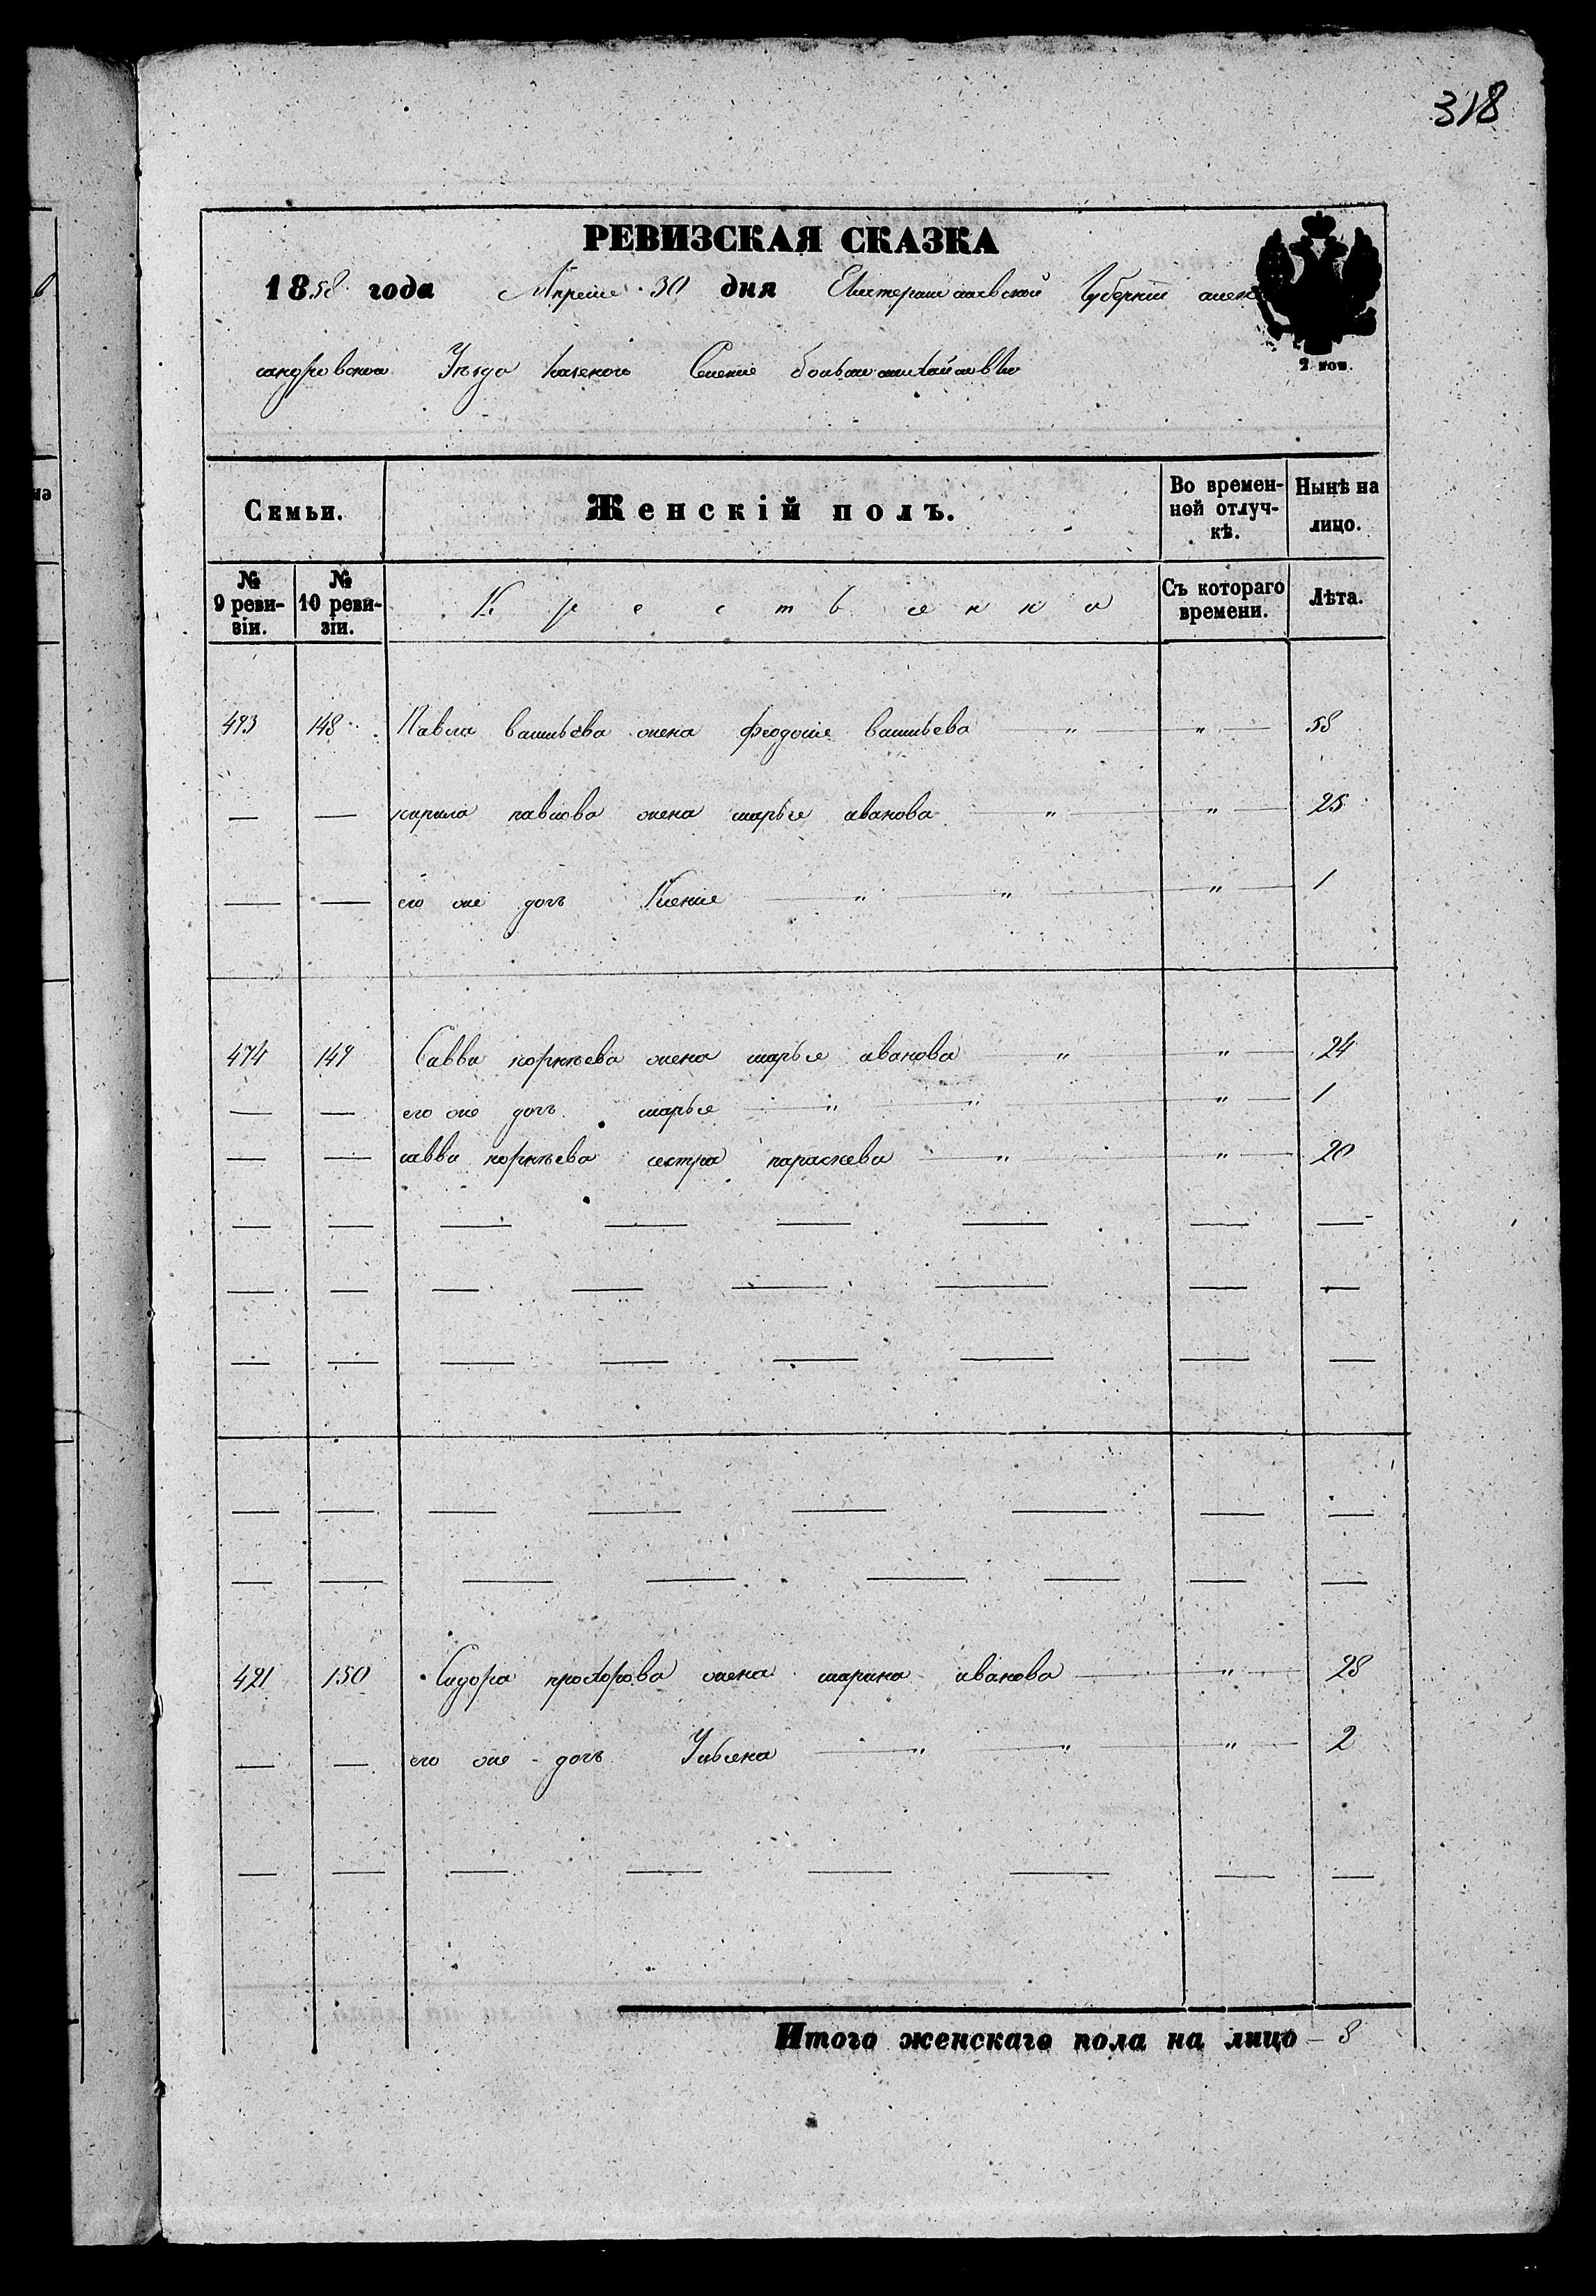 318
РЕВИЗСКАЯ СКАЗКА
1858 года Апреля 30 дня Екатеринославской Губернии алек
сандровскаго Уезда казеного Селение
2 коп.
Семьи. Женскій полъ. Во времен-ной отлуч-кѣ. Нынѣ на лицо.
№ 9 реви-зіи. № 10 реви-зіи. К р е с т ь я н к и Съ котораго времени. Лѣта.
493 148 Павла васильева жена феодосия васильева — " — " — 58
— — кирила павлова жена марья иванова — " — " — 25
— — его же дочь Ксения — " — " — " — 1
474 149 Савви корнеева жена марья иванова " " — 24
— — его же дочь марья — " — " — " — 1
— — савви корнеева сестра параскева — " — " — 20
— — — — — — — —
— — — — — — — —
— — — — — — — —
— — — — — — — —
— — — — — — — —
421 150 Сидора прохорова жена марина иванова — " — 28
— — его же дочь Ульяна — " — " — " — 2
— — — — — — — —
Итого женскаго пола на лицо — 8